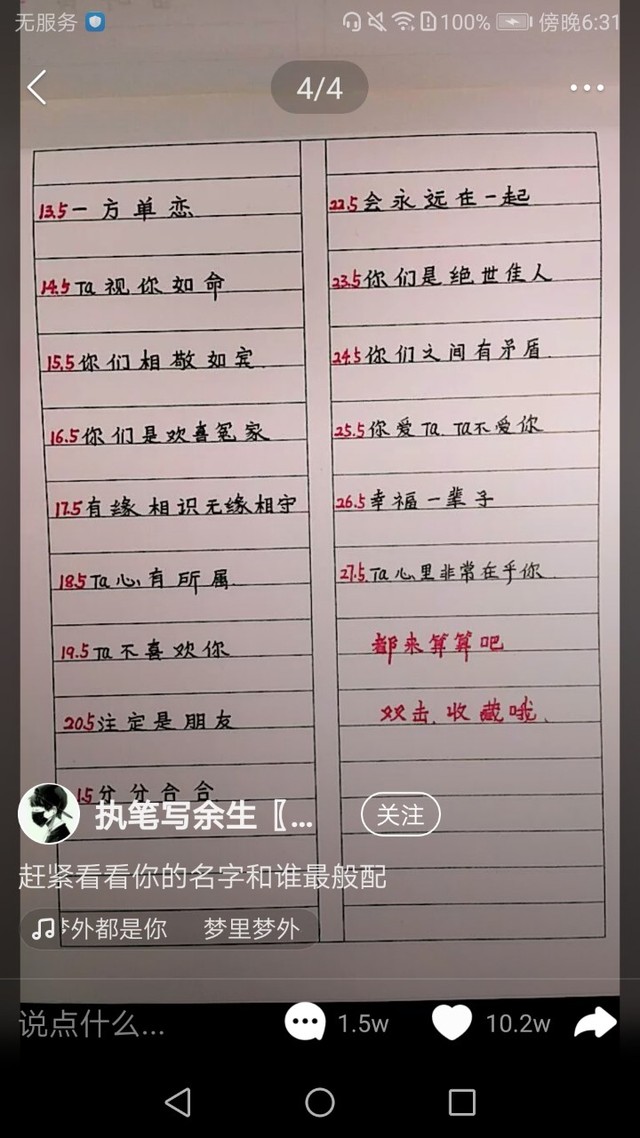 无服务
100%
傍晚6:31
4/4
13.5一方单恋
14.5Ta视你如命
15.5你们相敬如宾
16.5你们是欢喜冤家
17.5有缘相识无缘相守
18.5Ta心有所属
19.5Ta不喜欢你
20.5注定是朋友
1.5分分合合
22.5会永远在一起
23.5你们是绝世佳人
24.5你们之间有矛盾
25.5你爱Ta.Ta不爱你
26.5幸福一辈子
27.5.Ta心里非常在乎你
都来算算吧
双击.收藏哦.
执笔写余生〖...
关注
赶紧看看你的名字和谁最般配
梦外都是你 梦里梦外
说点什么...
1.5w
10.2w